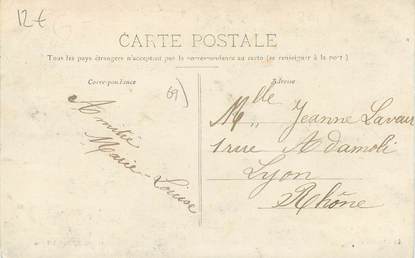 12€
CARTE POSTALE
Tous les pays étrangers n'acceptent pas la correspondance au recto (se renseigner à la poste)
Correspondance
Adresse
69)
Amitié
Marie-Louise
Mlle Jeanne Lavau
1 rue Adamoli
Lyon
Rhône